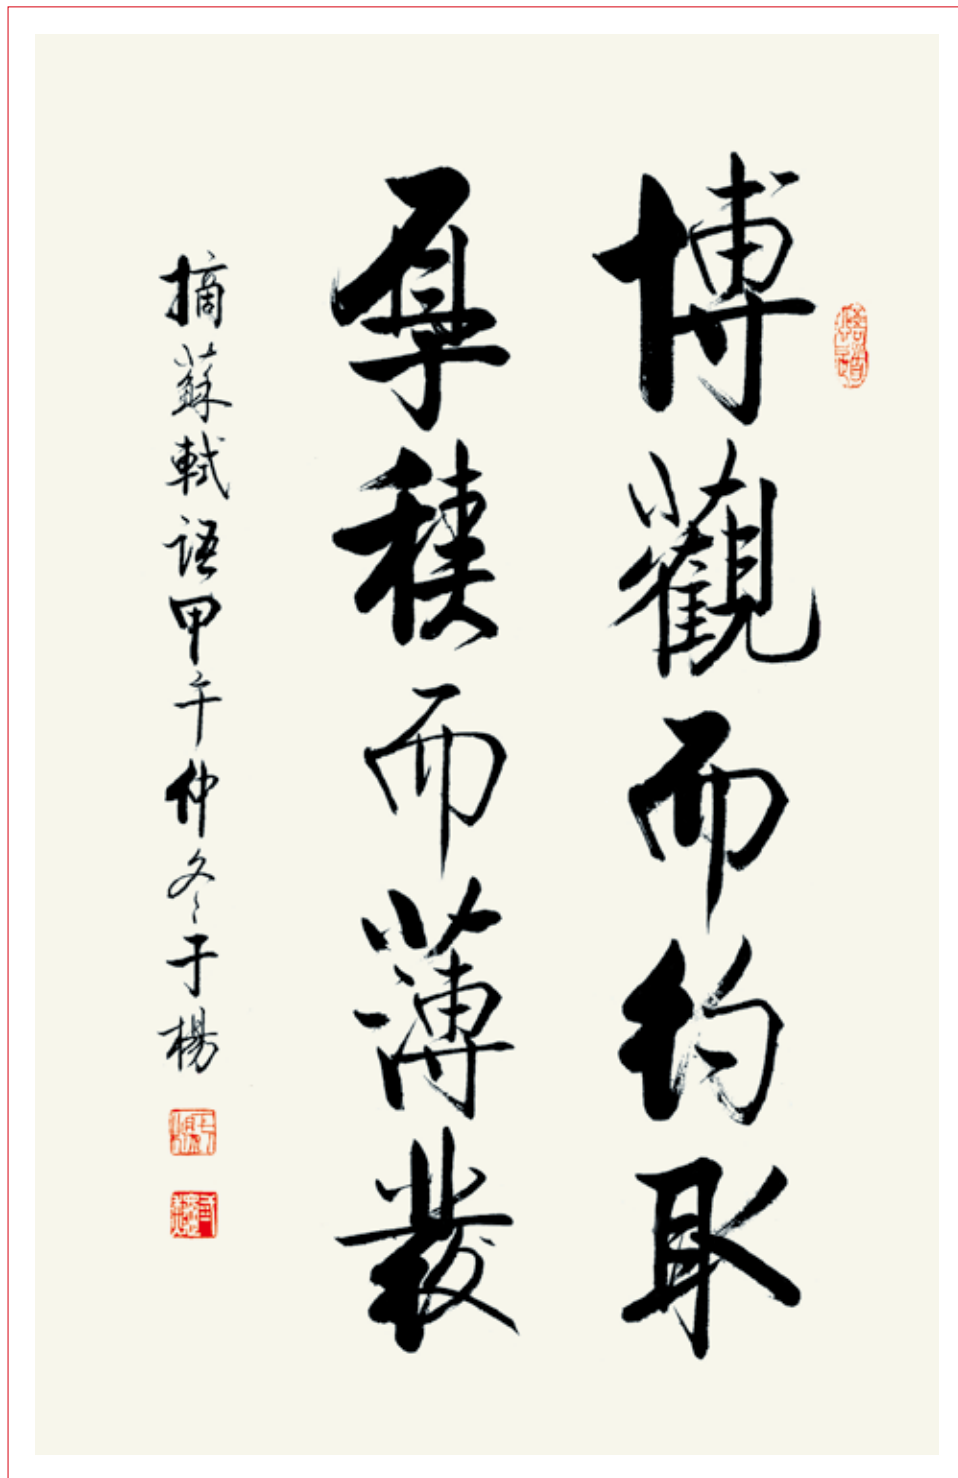 博觀而約取
厚積而薄發
摘蘇軾語甲午仲冬于楊